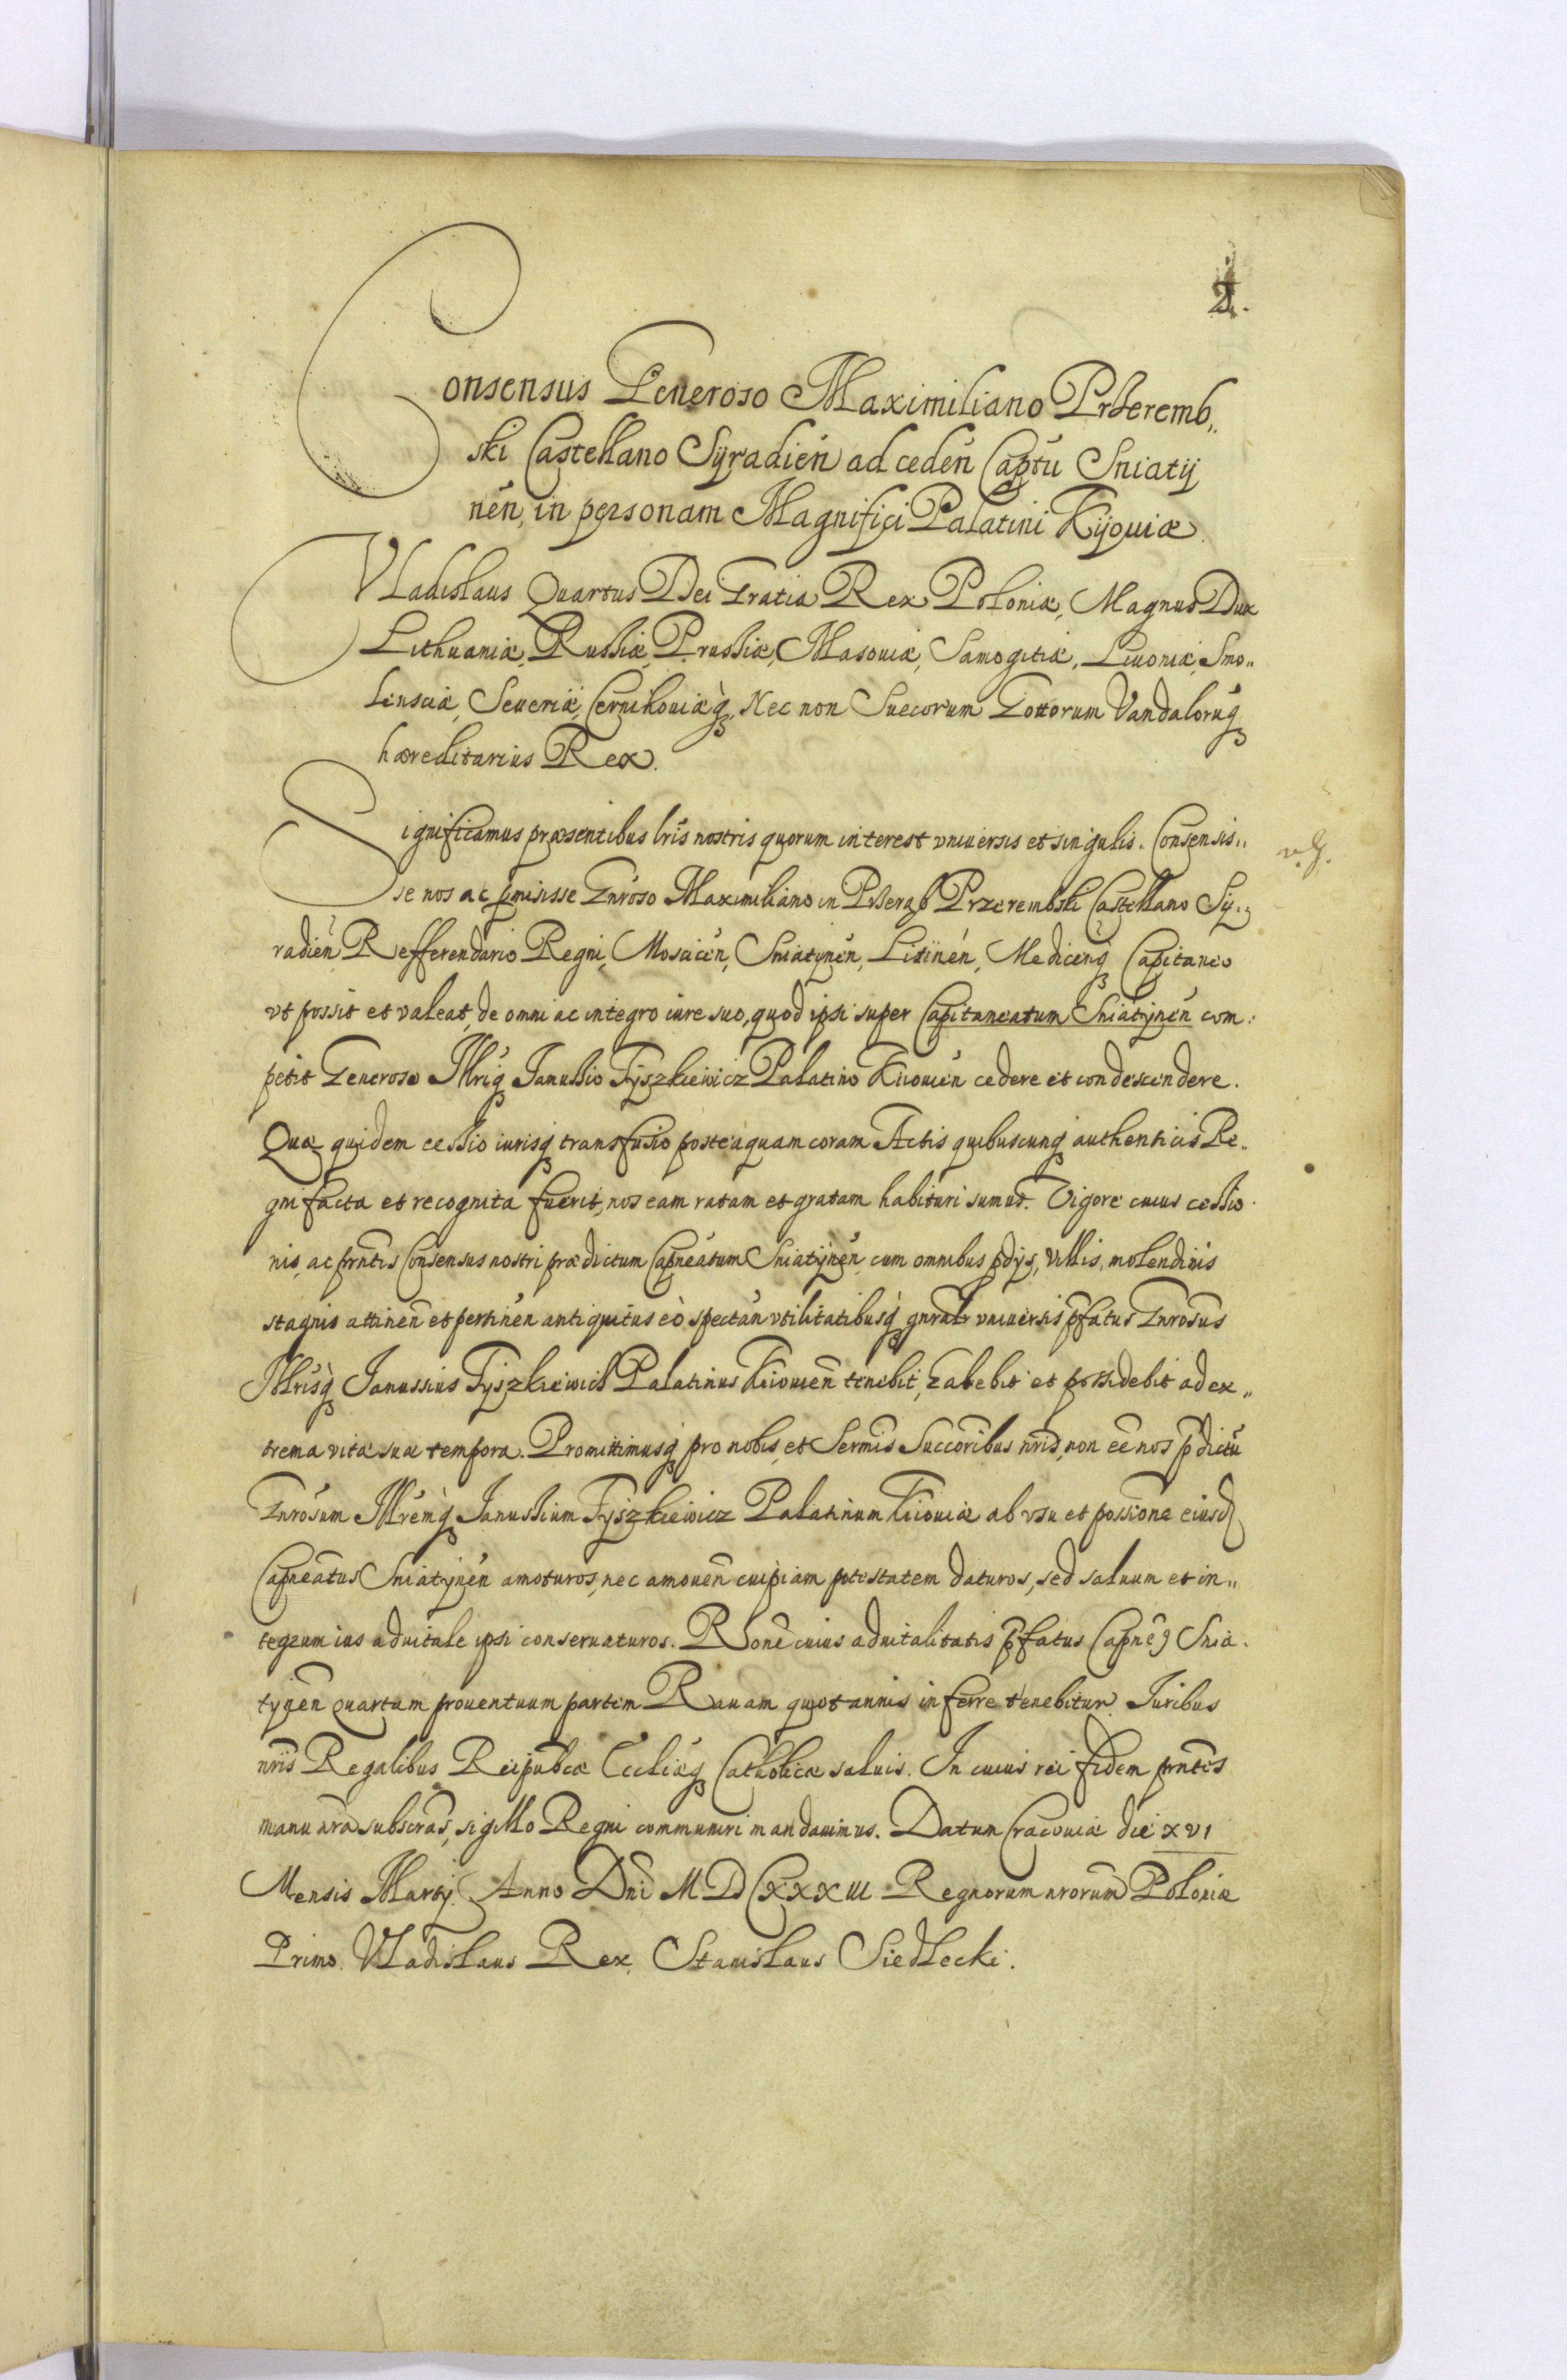 2.
Consensus Generoso Maximiliano Przeremb„
ski Castellano Syradien̄ ad ceden̄ Captū Sniatÿ
nen̄, in personam Magnifici Palatini Kijouiæ.
Vladislaus Quartus Dei Gratia Rex Poloniæ, Magnus Dux
Lithuaniæ, Russiæ, Prussiæ, Masouiæ, Samogitiæ, Liuoniæ, Smo„
lensciæ, Seueriæ, Cernihouiæq, Nec non Suecorum Gottorum Vandalorūq
hæreditarius Rex.
Significamus præsentibus lris̄ nostris quorum interest vniuersis et singulis. Consensis„
se nos ac pmisisse Gnroso Maximiliano in Przeręb Przerembski Castellano Sy„
radien̄ Refferendario Regni, Moscicen̄, Sniatynen̄, Litinen̄, Medicenq Capitaneo
vt possit et valeat, de omni ac integro iure suo, quod ipsi super Capitaneatum Sniatynen̄ com:
petit Generoso Illriq Janussio Tyszkiewicz Palatino Kiiouien̄ cedere et condescendere.
Quæ quidem cessio iurisq transfusio posteaquam coram Actis quibuscunq authenticis Re„
gni facta et recognita fuerit, nos eam ratam et gratam habituri sumus. Vigore cuius cessio
nis, ac prntis Consensus nostri prædictum Capneatum Sniatynen̄, cum omnibus pdys, villis, molendinis
stagnis attinen̄ et pertinen̄ antiquitus eò spectan̄ vtilitatibusq gnralr vniuersis pfatus Gnrosus
Illrisq Janussius Tyszkiewicz Palatinus Kiiouien̄ tenebit, habebit et possidebit ad ex„
trema vitæ suæ tempora. Promittimusq pro nobis, et Sermis Succoribus nris, non eē nos pdictū
Gnrosum Illremq Janussium Tyszkiewicz Palatinum Kiiouiæ ab vsu et possione eiusd
Capneatus Sniatynen̄ amoturos, nec amouen̄ cuipiam potestatem daturos, sed saluum et in„
tegrum ius aduitale ipsi conseruaturos. Rone cuius aduitalitatis pfatus Capne9 Snia.
tynen̄ quartam prouentuum partem Rauam quotannis inferre tenebitur. Juribus
nris Regalibus Reipubcæ Eccliæq Catholicæ saluis. In cuius rei fidem prntes
manu nra subscras, sigillo Regni communiri mandauimus. Datum Cracouiæ die XVI
Mensis Martÿ Anno Dni MDCXXXIII Regnorum nrorum Poloniæ
Primo. Vladislaus Rex, Stanislaus Siedlecki.